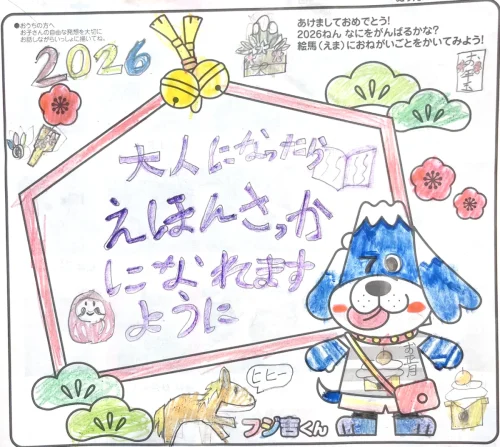 ●おうちの方へ
お子さんの自由な発想を大切に
お話しながらいっしょに描いてね。
あけましておめでとう!
2026ねん なにをがんばるかな?
絵馬(えま)におねがいごとをかいてみよう!
2026
お年玉
大人になったら
えほんさっか
になれます
ように
70
お正月
ヒヒー
フジ吉くん